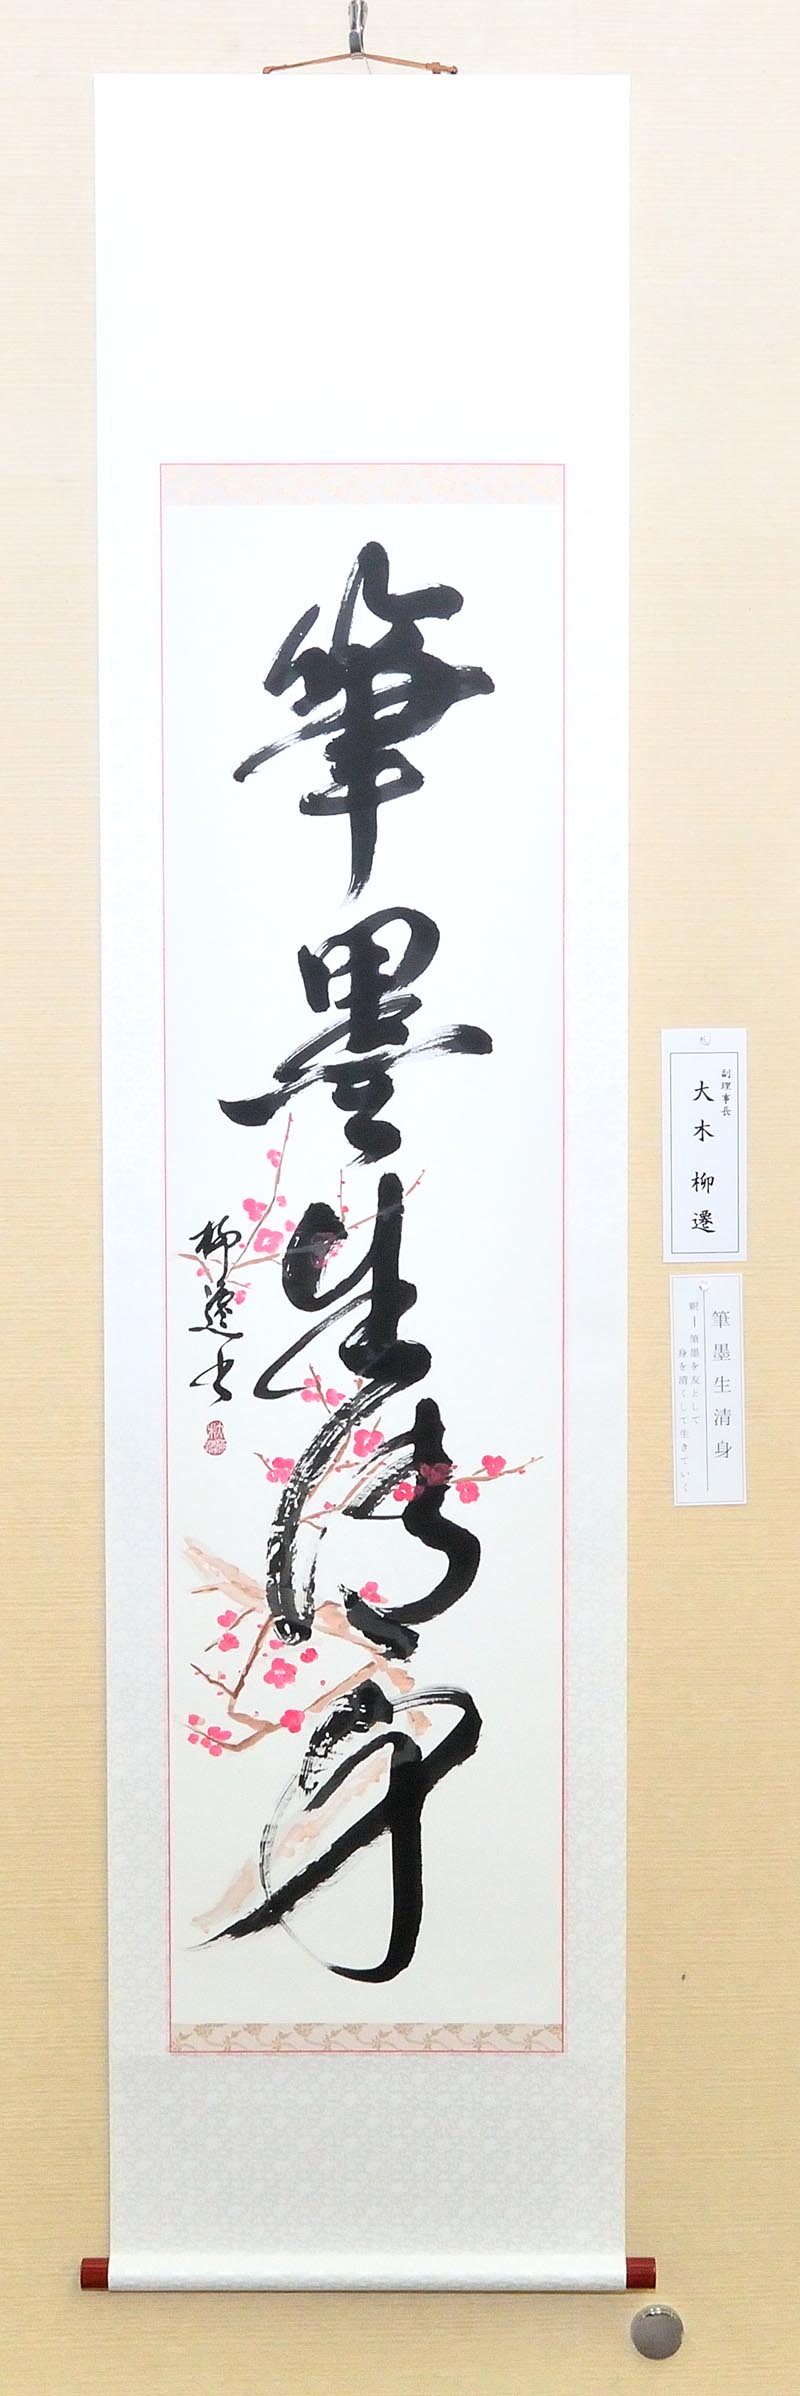 筆墨生清身
柳遷書
副理事長
大木柳遷
筆墨生清身
釈ー筆墨を友として
身を清くして生きていく